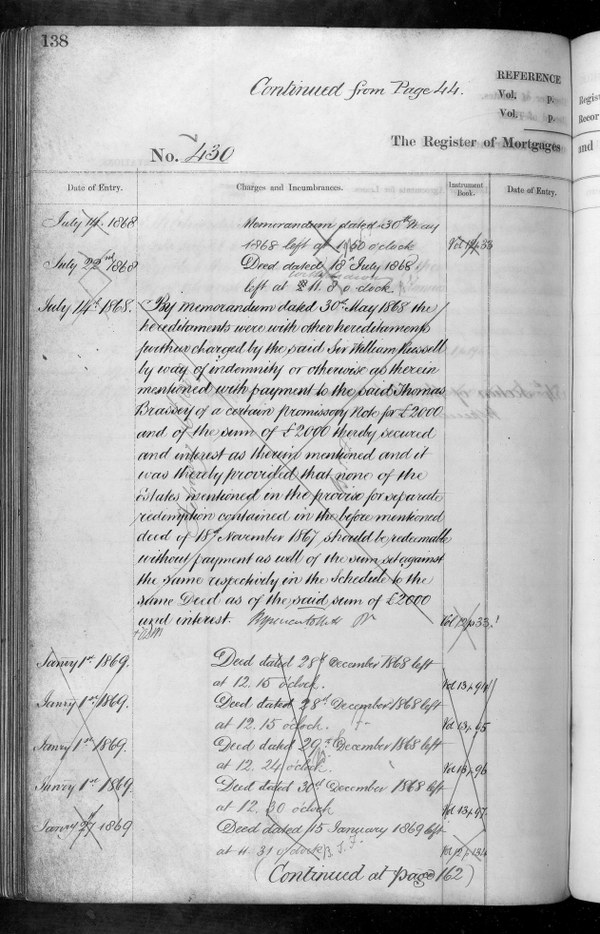 138
Continued from Page 44.
REFERENCE
Vol. p.
Vol. p.
No. 430
The Register of Mortgages
Regis
Recor
and
Date of Entry.
Charges and Incumbrances.
Instrument Book.
Date of Entry.
July 14. 1868
Memorandum dated 30th May
1868 left at 1.50 o'clock
Vol 12 p 33
July 22nd 1868
Deed dated 18 July 1868
left at 11. 8 o clock.
July 14th 1868.
By memorandum dated 30th May 1868 the
hereditaments were with other hereditaments
further charged by the said Sir William Russell
by way of indemnity or otherwise as therein
mentioned with payment to the said Thomas
Brassey of a certain promissory Note for £2000
and of the sum of £2000 thereby secured
and interest as therein mentioned and it
was thereby provided that none of the
estates mentioned in the proviso for separate
redemption contained in the before mentioned
deed of 18th November 1867 should be redeemable
without payment as well of the sum set against
the same respectively in the Schedule to the
same Deed as of the said sum of £2000
and interest.
Vol 12 p 33.
Janry 1st 1869.
Deed dated 28th December 1868 left
at 12. 15 o'clock.
Vol 13 p. 94
Janry 1st 1869.
Deed dated 28th December 1868 left
at 12. 15 o'clock.
Vol 13 p. 95
Janry 1st 1869.
Deed dated 29th December 1868 left
at 12. 24 o'clock.
Vol 13 p. 96
Janry 1st 1869.
Deed dated 30th December 1868 left
at 12. 30 o'clock
Vol 13 p. 97
Janry 27 1869
Deed dated 15 January 1869 left
at 11. 31 o'clock
Vol 12 p. 134
(Continued at page 162)